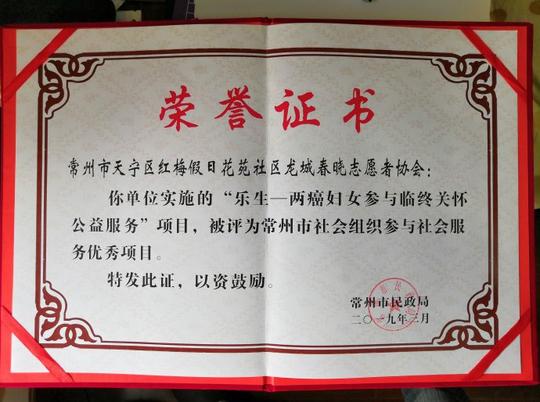 荣誉证书
常州市天宁区红梅假日花苑社区龙城春晓志愿者协会：
你单位实施的“乐生—两癌妇女参与临终关怀
公益服务”项目，被评为常州市社会组织参与社会服
务优秀项目。
特发此证，以资鼓励。
常州市民政局
二〇一九年三月